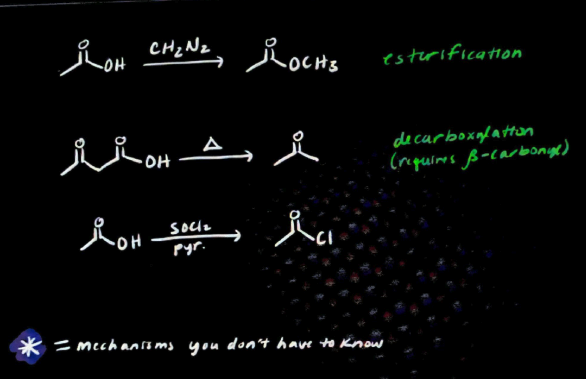 O O
OH CH2N2 OCH3 esterification
O O O
OH Δ decarboxylation
(requires β-carbonyl)
O O
OH SOCl2 Cl
pyr.
* = mechanisms you don't have to know